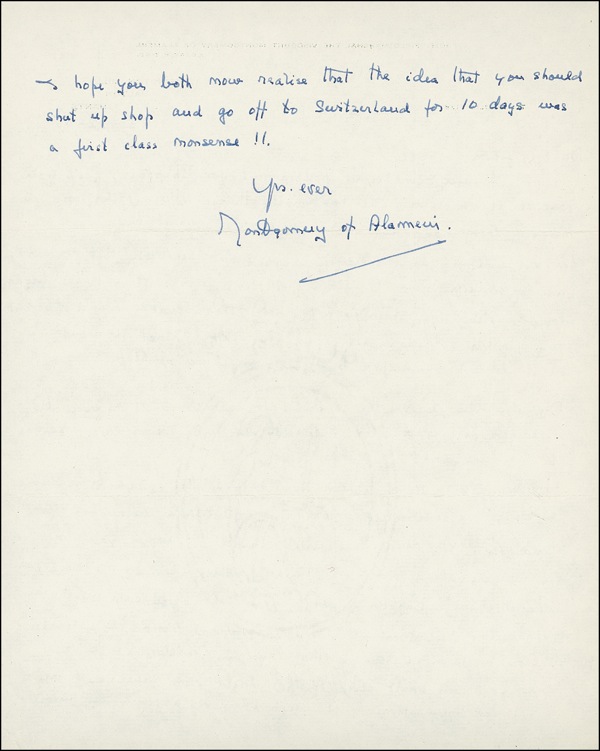 I hope you both now realise that the idea that you should
shut up shop and go off to Switzerland for 10 days was
a first class nonsense !!.
Yrs. ever
Montgomery of Alamein.